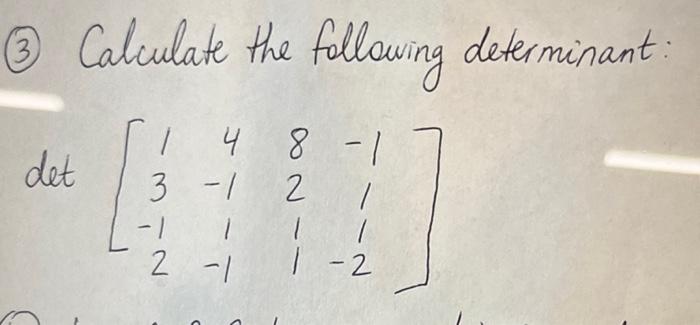 ③ Calculate the following determinant:
det
1 4 8 -1
3 -1 2 1
-1 1 1 1
2 -1 1 -2